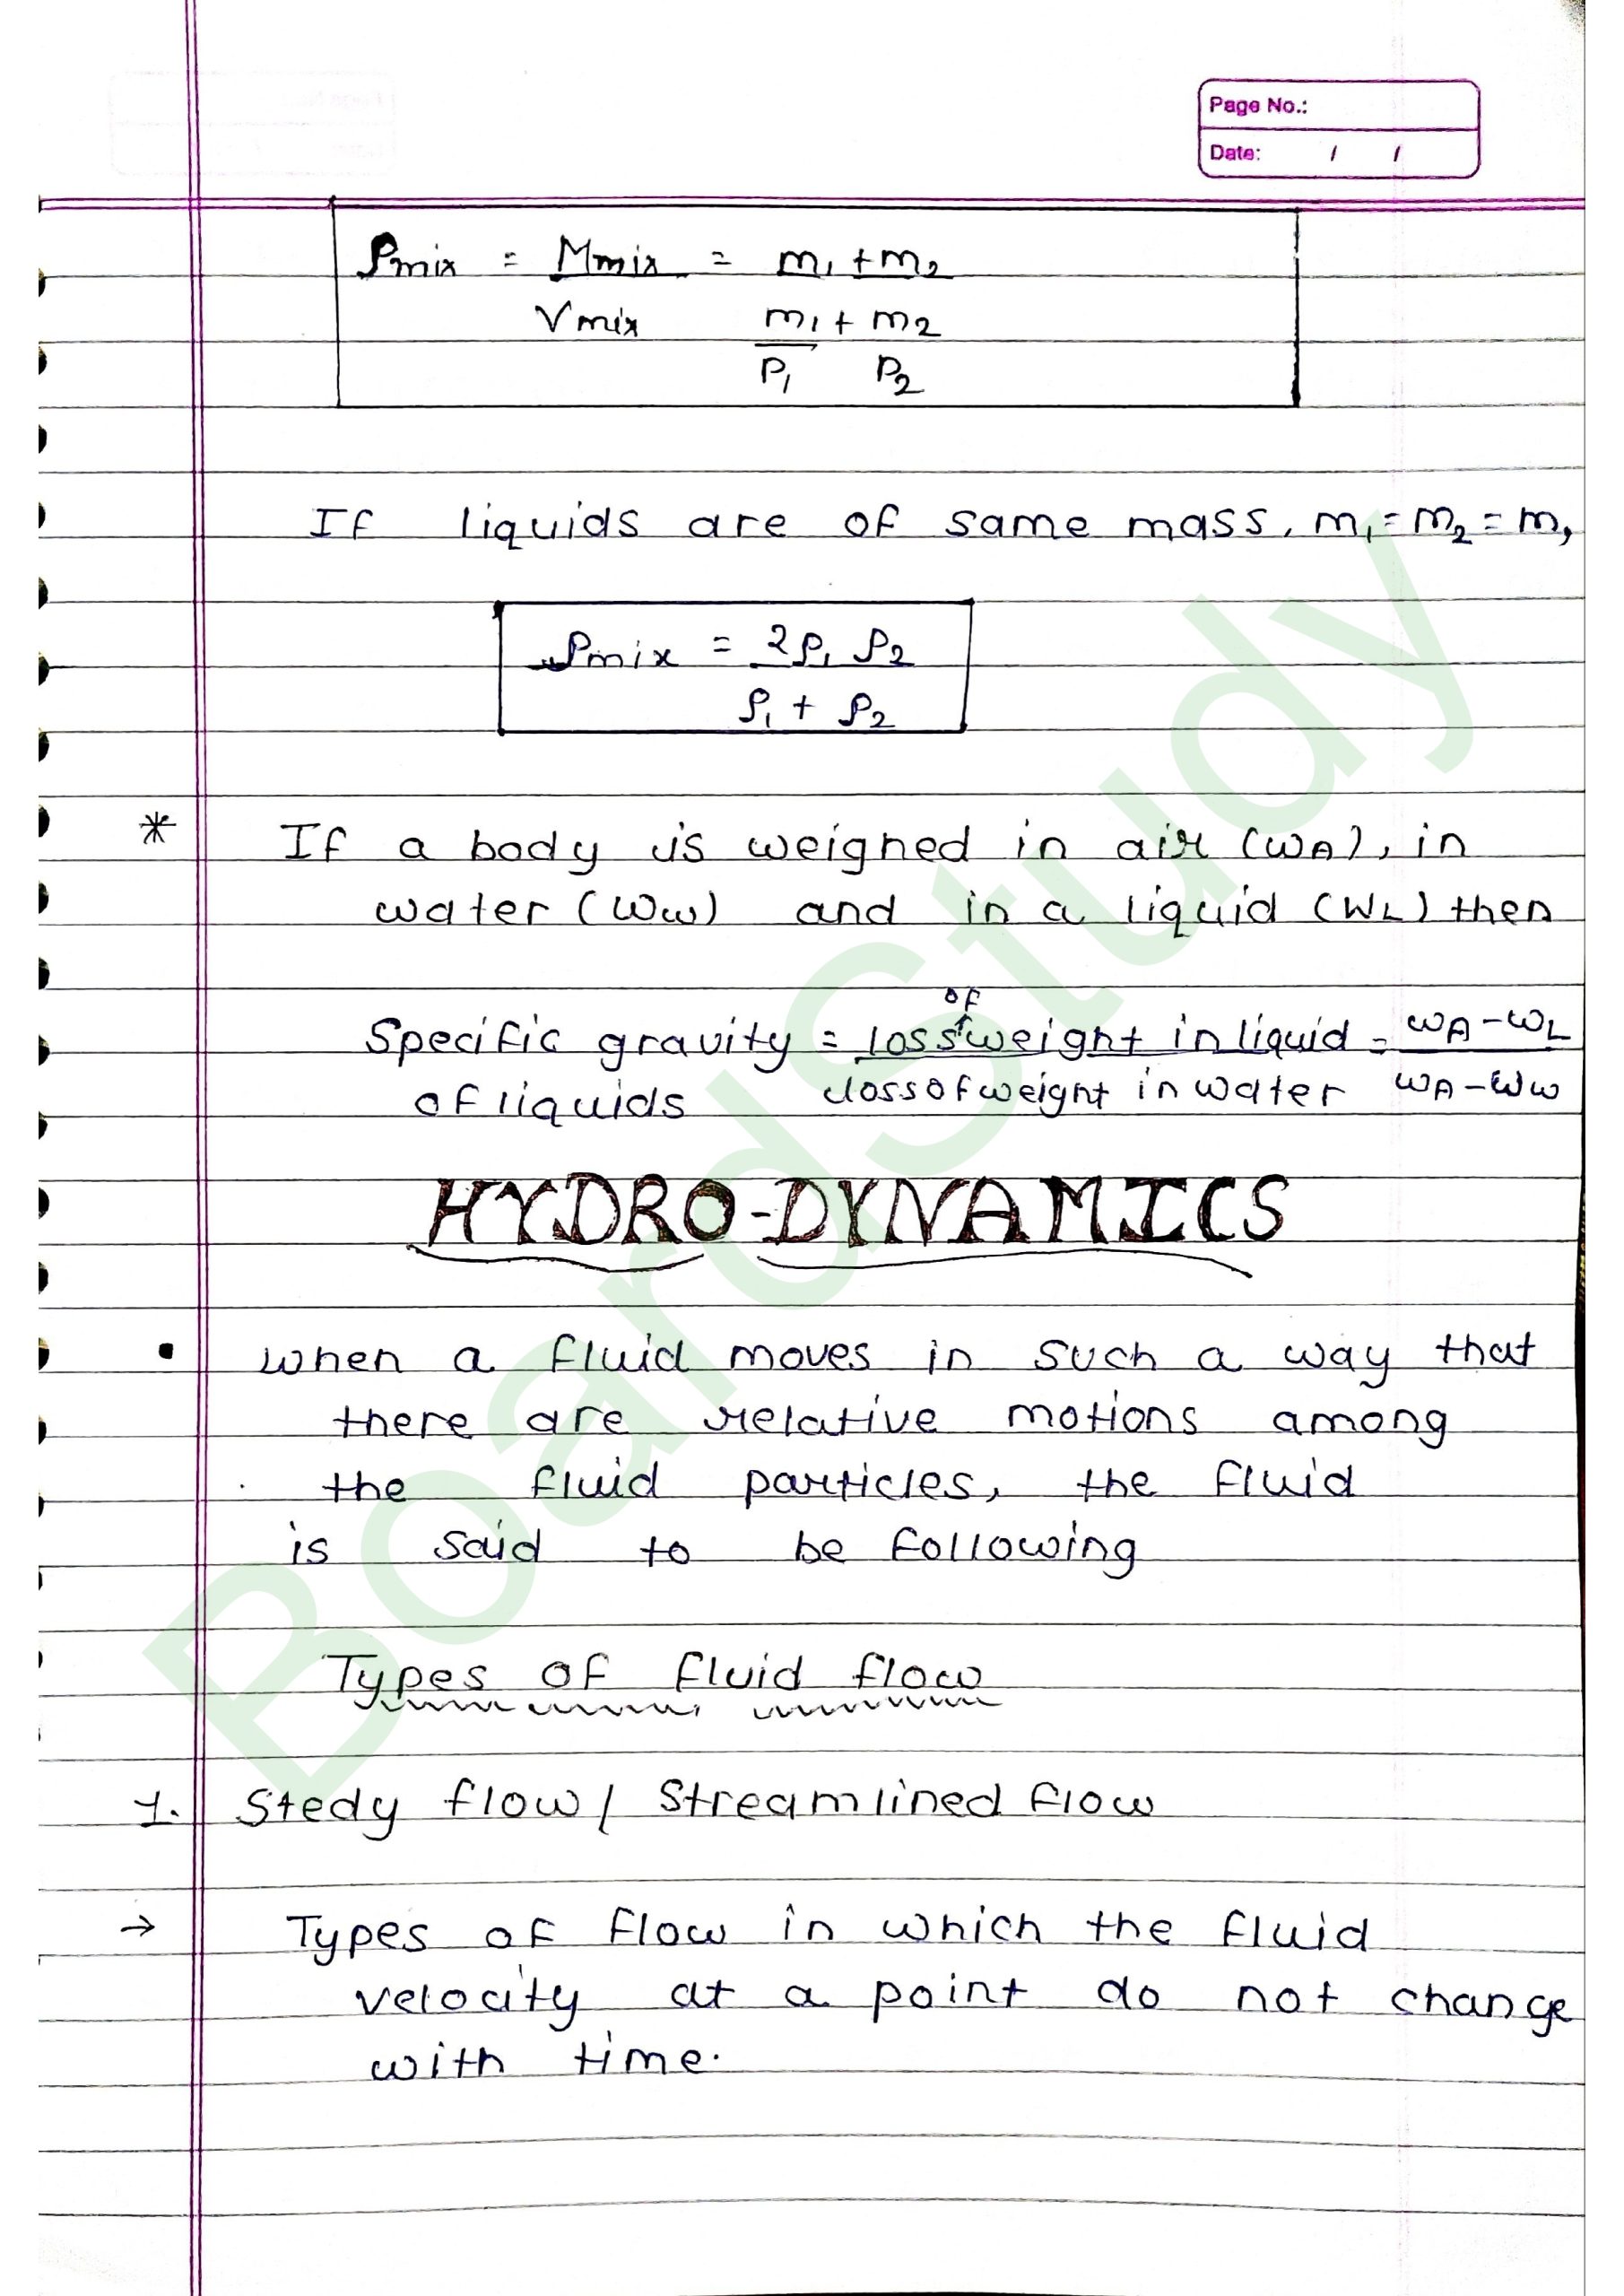 Page No.:
Date: / /
ρmix = Mmix = m₁ + m₂
Vmix m₁ + m₂
P₁ P₂
If liquids are of same mass, m₁ = m₂ = m,
ρmix = 2ρ₁ ρ₂
ρ₁ + ρ₂
* If a body is weighed in air (WA), in
water (Ww) and in a liquid (WL) then
of
Specific gravity = loss weight in liquid = WA - WL
of liquids loss of weight in water WA - Ww
HYDRO-DYNAMICS
• when a fluid moves in such a way that
there are relative motions among
the fluid particles, the fluid
is said to be following
Types of fluid flow
1. Stedy flow / Streamlined flow
→ Types of flow in which the fluid
velocity at a point do not change
with time.
BoardStudy